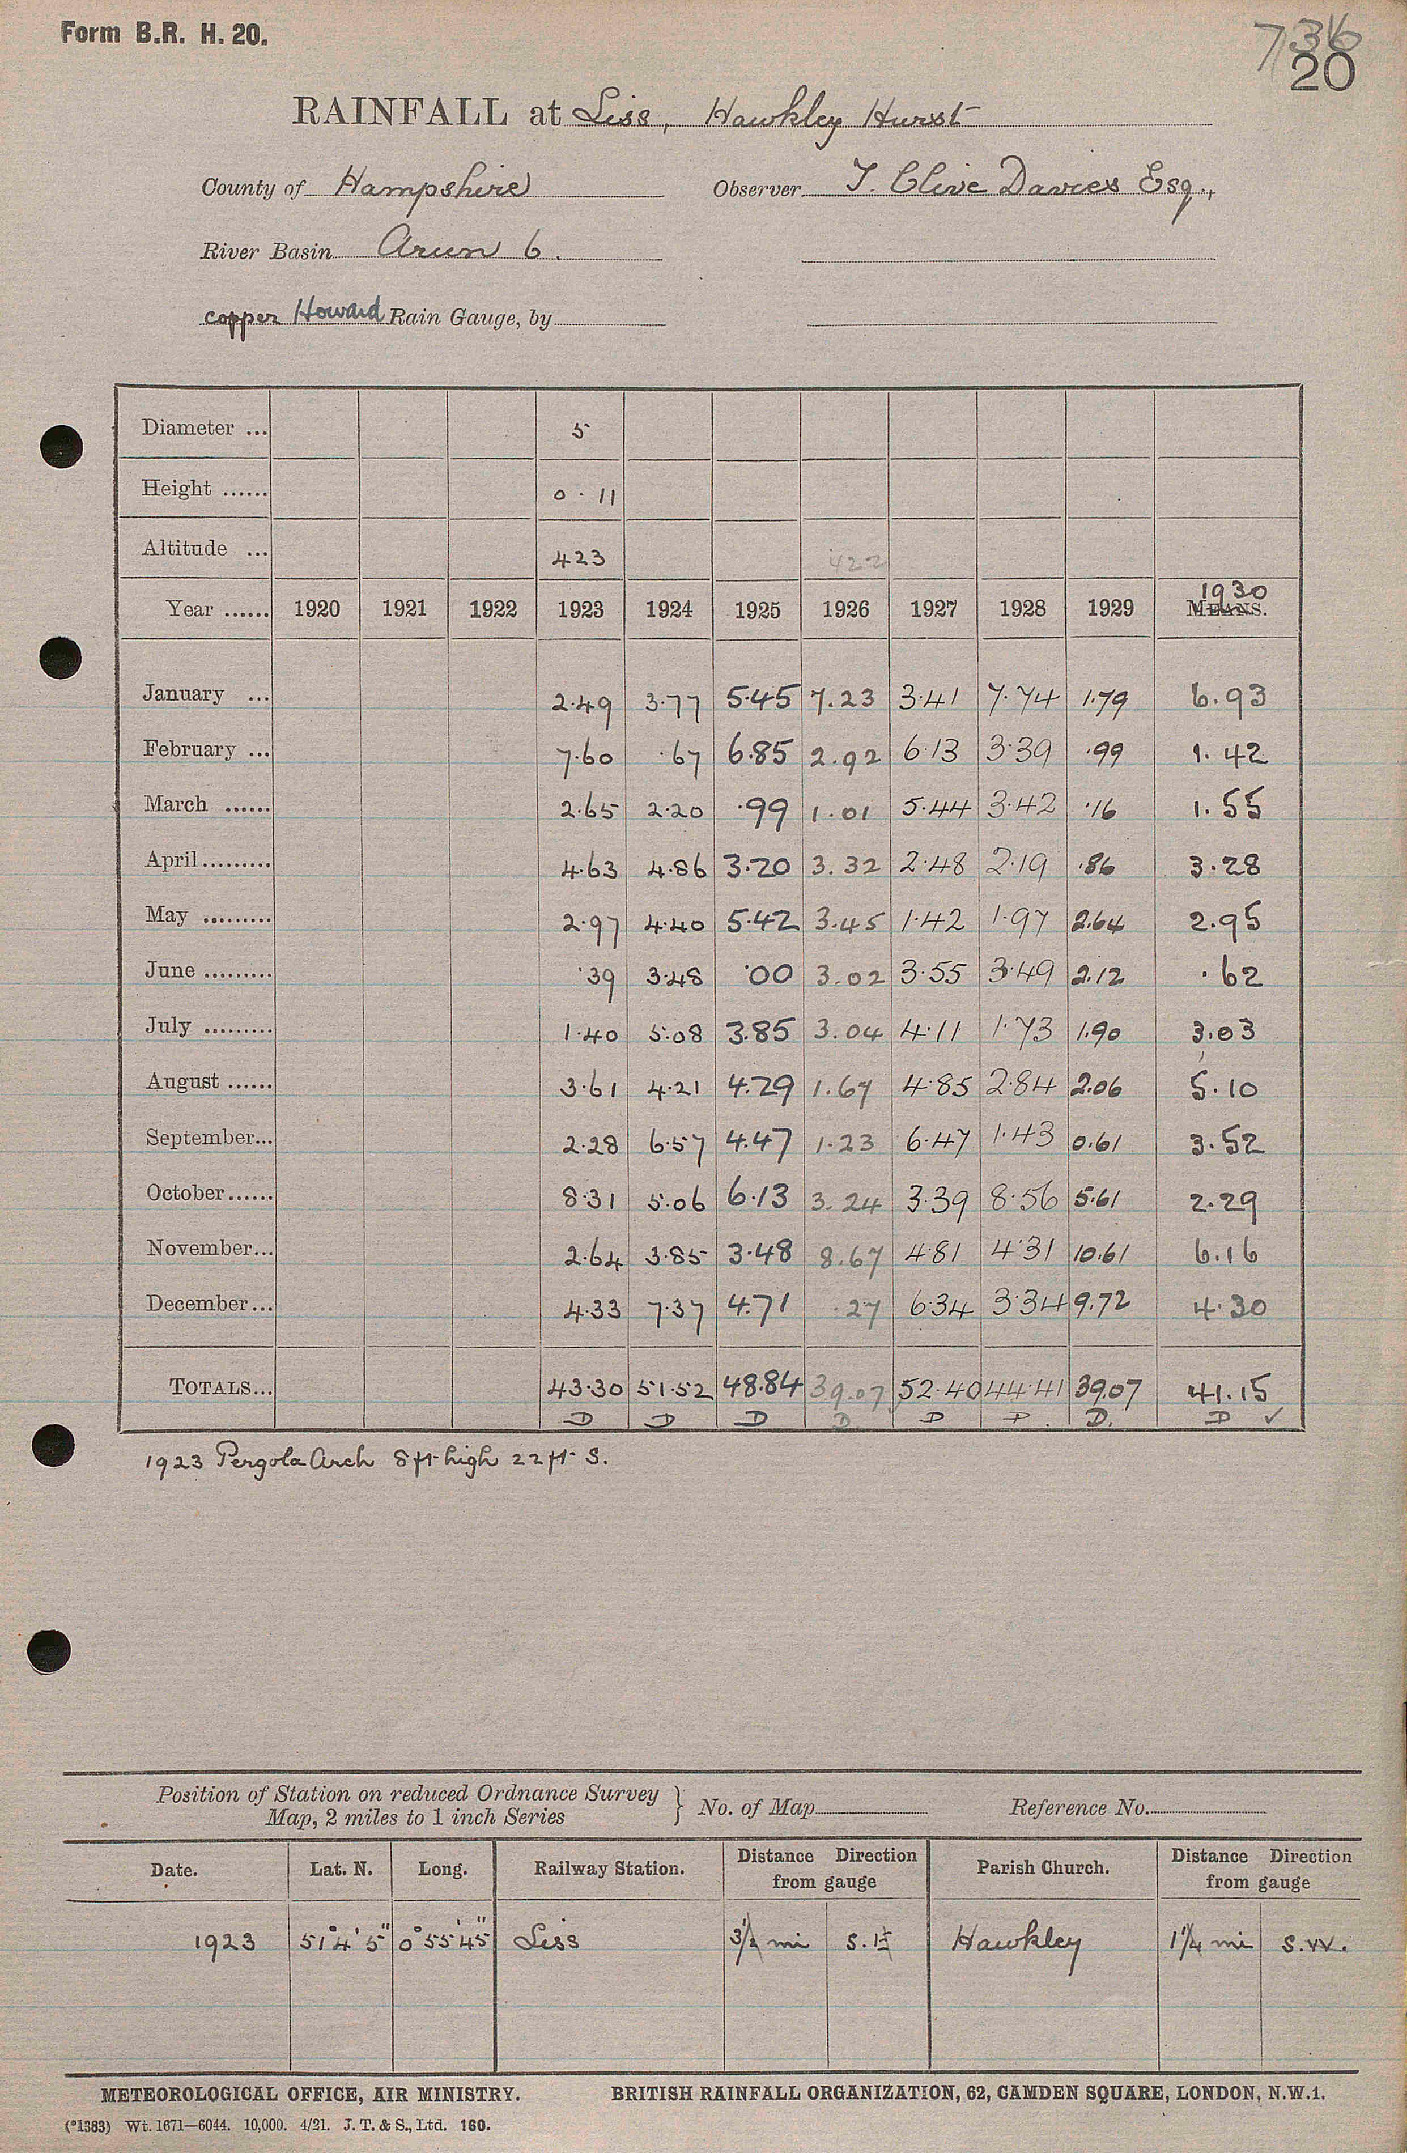 Form B.R. H. 20.
736
20
RAINFALL at Liss, Hawkley Hurst
County of Hampshire Observer T. Clive Davies Esq.,
River Basin Arun 6.
copper Howard Rain Gauge, by
Diameter ... 5
Height ...... 0·11
Altitude ... 423 422
1930
Year ...... 1920 1921 1922 1923 1924 1925 1926 1927 1928 1929 MEANS.
January ... 2·49 3·77 5·45 7.23 3·41 7·74 1·79 6.93
February ... 7·60 ·67 6.85 2.92 6·13 3·39 ·99 1.42
March ...... 2·65 2·20 ·99 1.01 5·44 3·42 ·16 1.55
April ......... 4·63 4·86 3·20 3.32 2·48 2·19 ·86 3·28
May ......... 2·97 4·40 5·42 3.45 1·42 1·97 2.64 2.95
June ......... ·39 3·48 ·00 3.02 3·55 3·49 2.12 ·62
July ......... 1·40 5·08 3.85 3.04 4·11 1·73 1.90 3.03
August ...... 3·61 4·21 4.29 1.67 4·85 2·84 2.06 5.10
September... 2·28 6·57 4.47 1.23 6·47 1·43 0.61 3.52
October...... 8·31 5·06 6·13 3.24 3·39 8·56 5·61 2·29
November... 2·64 3·85 3·48 8.67 4·81 4·31 10·61 6.16
December... 4·33 7·37 4.71 .27 6·34 3·34 9.72 4·30
TOTALS... 43·30 51·52 48·84 39.07 52·40 44·41 39.07 41.15
D D D D. D D. D. D ✓
1923 Pergola Arch 8 ft high 22 ft S.
Position of Station on reduced Ordnance Survey
Map, 2 miles to 1 inch Series } No. of Map Reference No.
Date. Lat. N. Long. Railway Station. Distance Direction from gauge Parish Church. Distance Direction from gauge
1923 51° 4' 5" 0° 55' 45" Liss 3½ mi Hawkley 1¼ mi S.W.
METEOROLOGICAL OFFICE, AIR MINISTRY. BRITISH RAINFALL ORGANIZATION, 62, CAMDEN SQUARE, LONDON, N.W.1.
(*1383) Wt. 1671—6044. 10,000. 4/21. J. T. & S., Ltd. 160.